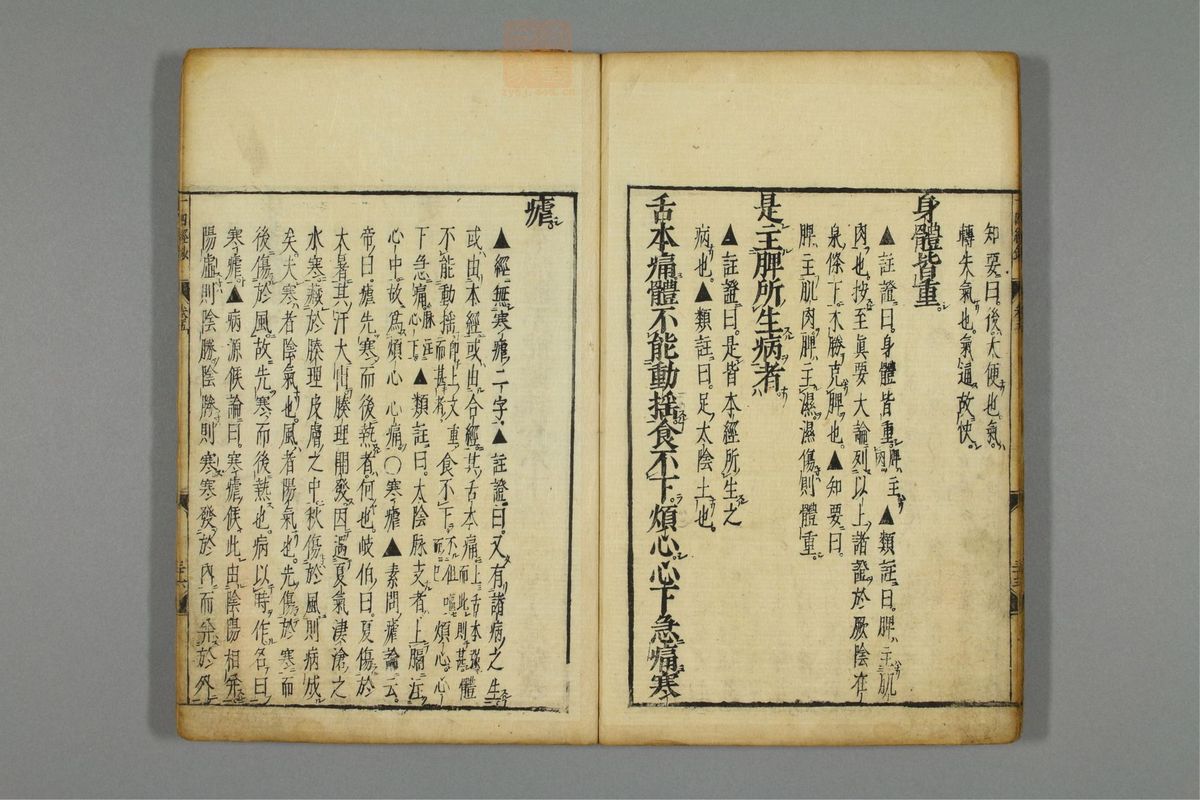 知要曰後大便也氣
轉失氣也氣逼故快
身體皆重
▲註證曰身體皆重脾主肉▲類註曰脾主肌
肉也按至眞要大論列以上諸證於厥陰在
泉條下木勝克脾也▲知要曰
脾主肌肉脾主濕濕傷則體重
是主脾所生病者
▲註證曰是皆本經所生之
病也▲類註曰足太陰土也
舌本痛體不能動揺食不下煩心心下急痛寒
瘧
▲經無寒瘧二字▲註證曰又有諸病之生
或由本經或由合經其舌本痛上舌本強而此則甚體
不能動揺即上文重而甚者食不下不但嘔而已煩心心
下急痛脉註心下▲類註曰太陰脉支者上膈注
心中故為煩心心痛○寒瘧▲素問瘧論云
帝曰瘧先寒而後熱者何也岐伯曰夏傷於
大暑其汗大出腠理開發因遇夏氣淒滄之
水寒藏於腠理皮膚之中秋傷於風則病成
矣夫寒者陰氣也風者陽氣也先傷於寒而
後傷於風故先寒而後熱也病以時作名曰
寒瘧▲病源候論曰寒瘧候此由陰陽相并
陽虛則陰勝陰勝則寒寒發於內而并於外